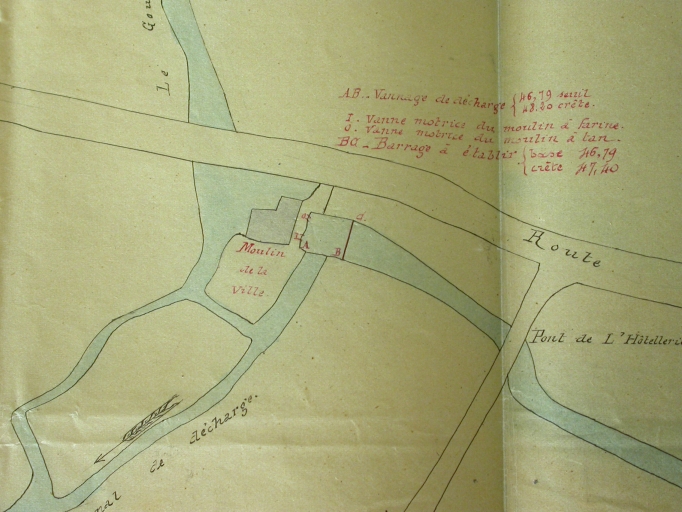 Le
AB_ Vannage de décharge { 46,79 seuil
48.20 crête.
I. Vanne motrice du moulin à farine.
J. Vanne motrice du moulin à tan.
BC_ Barrage à établir { base 46,79
{ crête 47,40
A
B
Moulin
de la
Ville.
Route
Pont de L'Hôtellerie
de décharge.